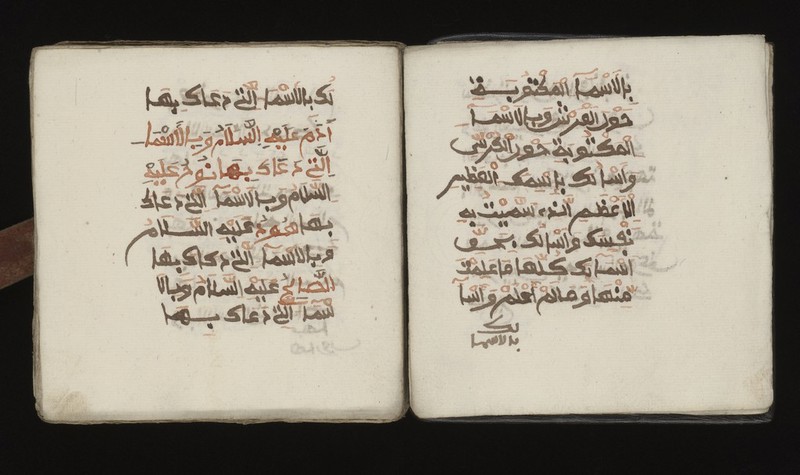 بالاسما المكتوبة
حول العرش وبالاسما
المكتوبة حول الكرسي
واسالك باسمك العظيم
الاعظم الذي سميت به
نفسك واسالك بحق
اسمائك كلها ما علمت
منها وما لم اعلم واسا
لك
بالاسما
لك بالاسما التي دعاك بها
ادم عليه السلام وبالاسما
التي دعاك بها نوح عليه
السلام وبالاسما التي دعاك
بها هود عليه السلام
وبالاسما التي دعاك بها
الصالح عليه السلام وبالا
سما التي دعاك بها